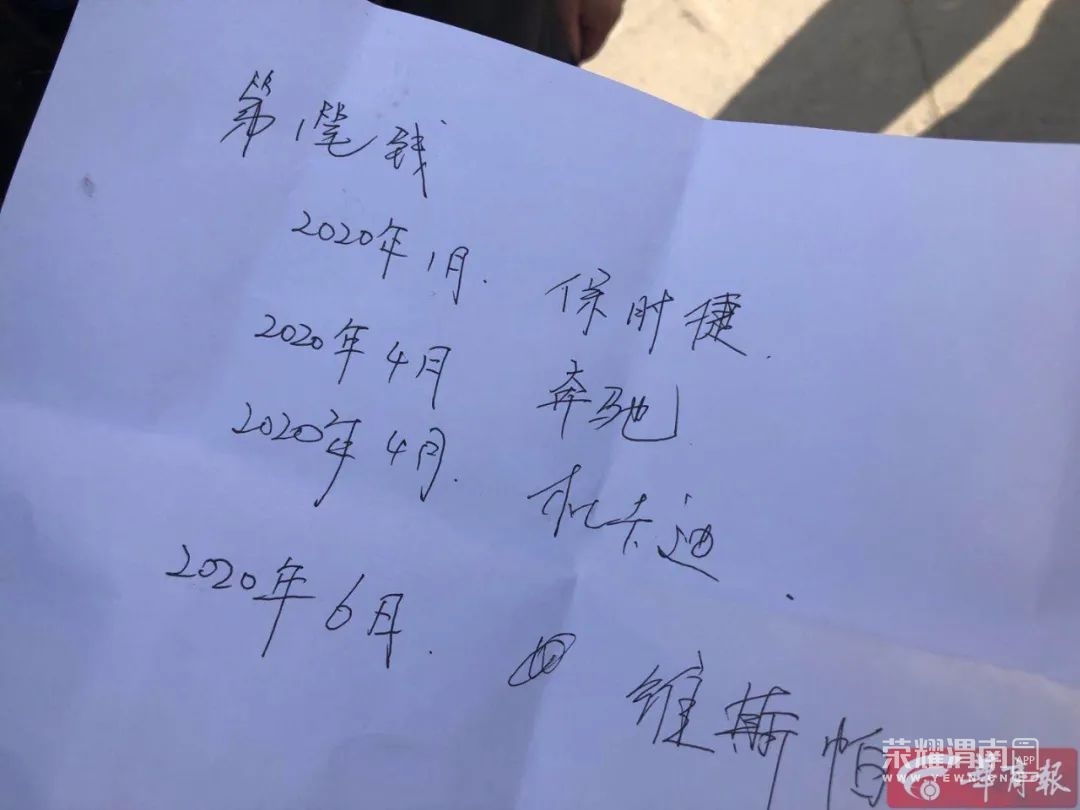 第1笔钱
2020年1月. 保时捷.
2020年4月 奔驰
2020年4月. 卡迪.
2020年6月. 维斯帕
荣耀渭南 APP
WWW.YEWN.CN
华商报